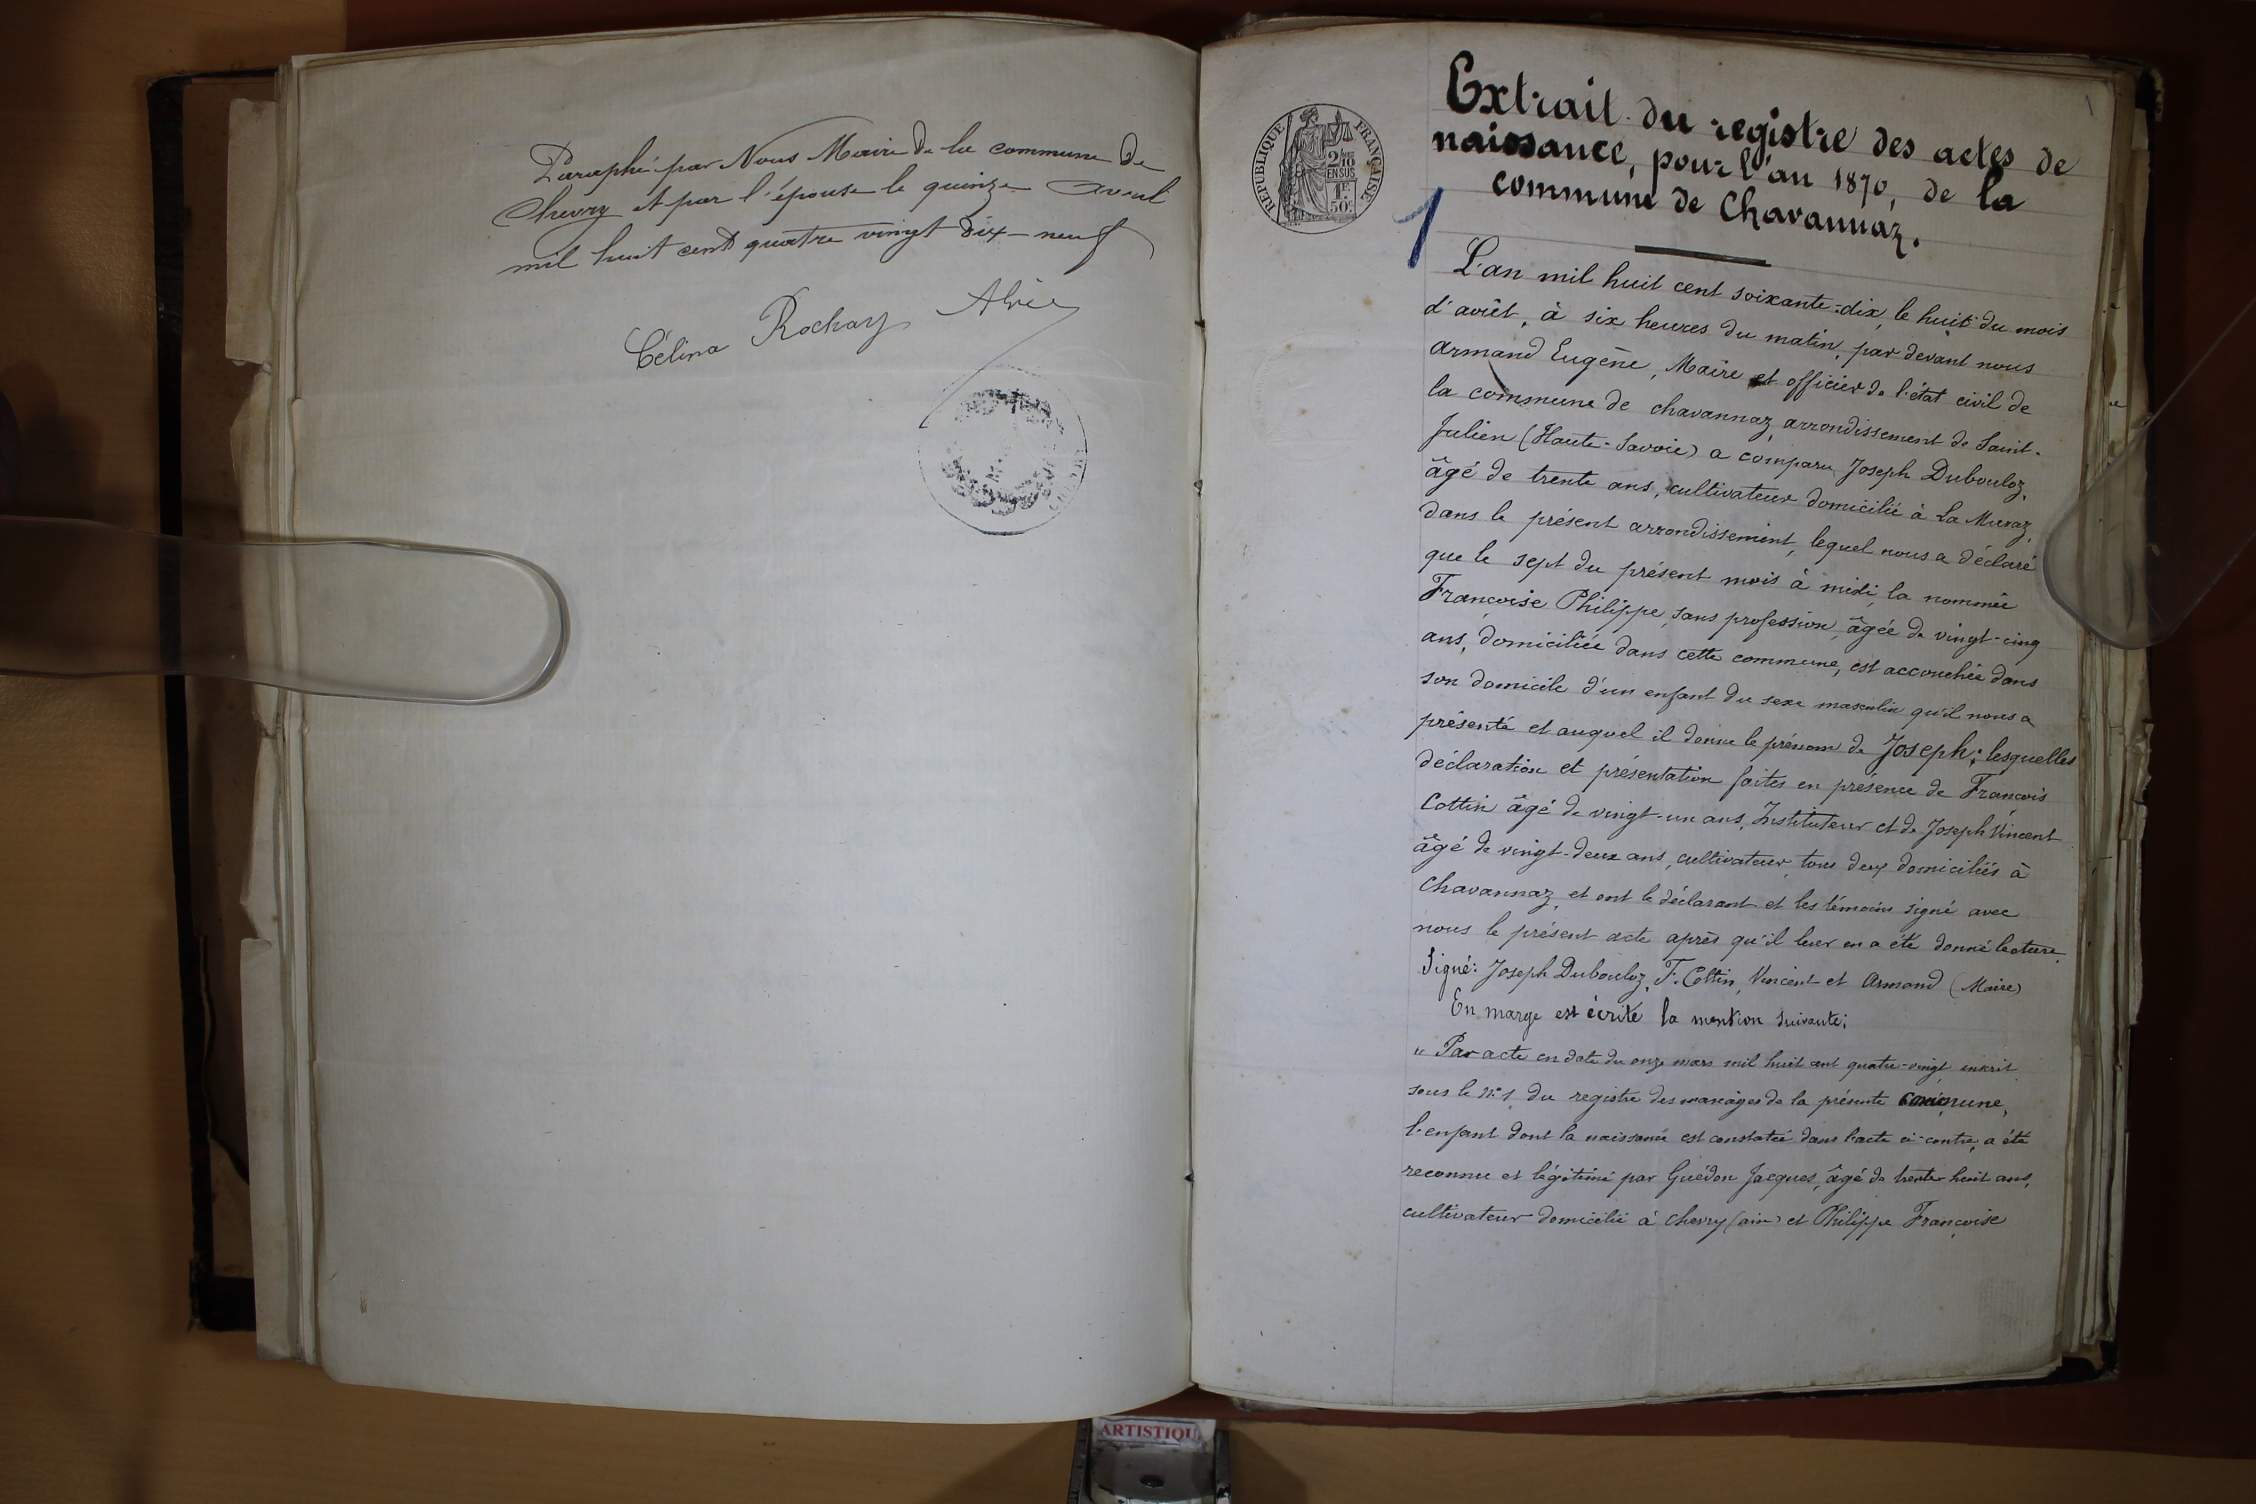 Paraphé par Nous Maire de la commune de
Chevry et par l'épouse le quinze avril
mil huit cent quatre vingt dix-neuf
Célina Rochay
RÉPUBLIQUE FRANÇAISE
2/10
EN SUS
1F
50c
1
Extrait du registre des actes de
naissance, pour l'an 1870, de la
commune de Chavannaz.
L'an mil huit cent soixante-dix, le huit du mois
d'août, à six heures du matin, par devant nous
Armand Eugène, Maire et officier de l'état civil de
la commune de chavannaz, arrondissement de Saint-
Julien (Haute-Savoie) a comparu Joseph Dubouloz,
âgé de trente ans, cultivateur domicilié à La Muraz,
dans le présent arrondissement, lequel nous a déclaré
que le sept du présent mois à midi, la nommée
Françoise Philippe, sans profession, âgée de vingt-cinq
ans, domiciliée dans cette commune, est accouchée dans
son domicile d'un enfant du sexe masculin qu'il nous a
présenté et auquel il donne le prénom de Joseph; lesquelles
déclaration et présentation faites en présence de François
Cottin âgé de vingt-un ans, Instituteur et de Joseph Vincent
âgé de vingt-deux ans, cultivateur, tous deux domiciliés à
Chavannaz, et ont le déclarant et les témoins signé avec
nous le présent acte après qu'il leur en a été donné lecture.
Signé: Joseph Dubouloz, F. Cottin, Vincent et Armand (Maire)
En marge est écrite la mention suivante:
" Par acte en date du onze mars mil huit cent quatre-vingt, inscrit
sous le N° 1 du registre des mariages de la présente commune,
l'enfant dont la naissance est constatée dans l'acte ci-contre, a été
reconnu et légitimé par Guédon Jacques, âgé de trente huit ans,
cultivateur domicilié à Chevry (ain) et Philippe Françoise
ARTISTIQU